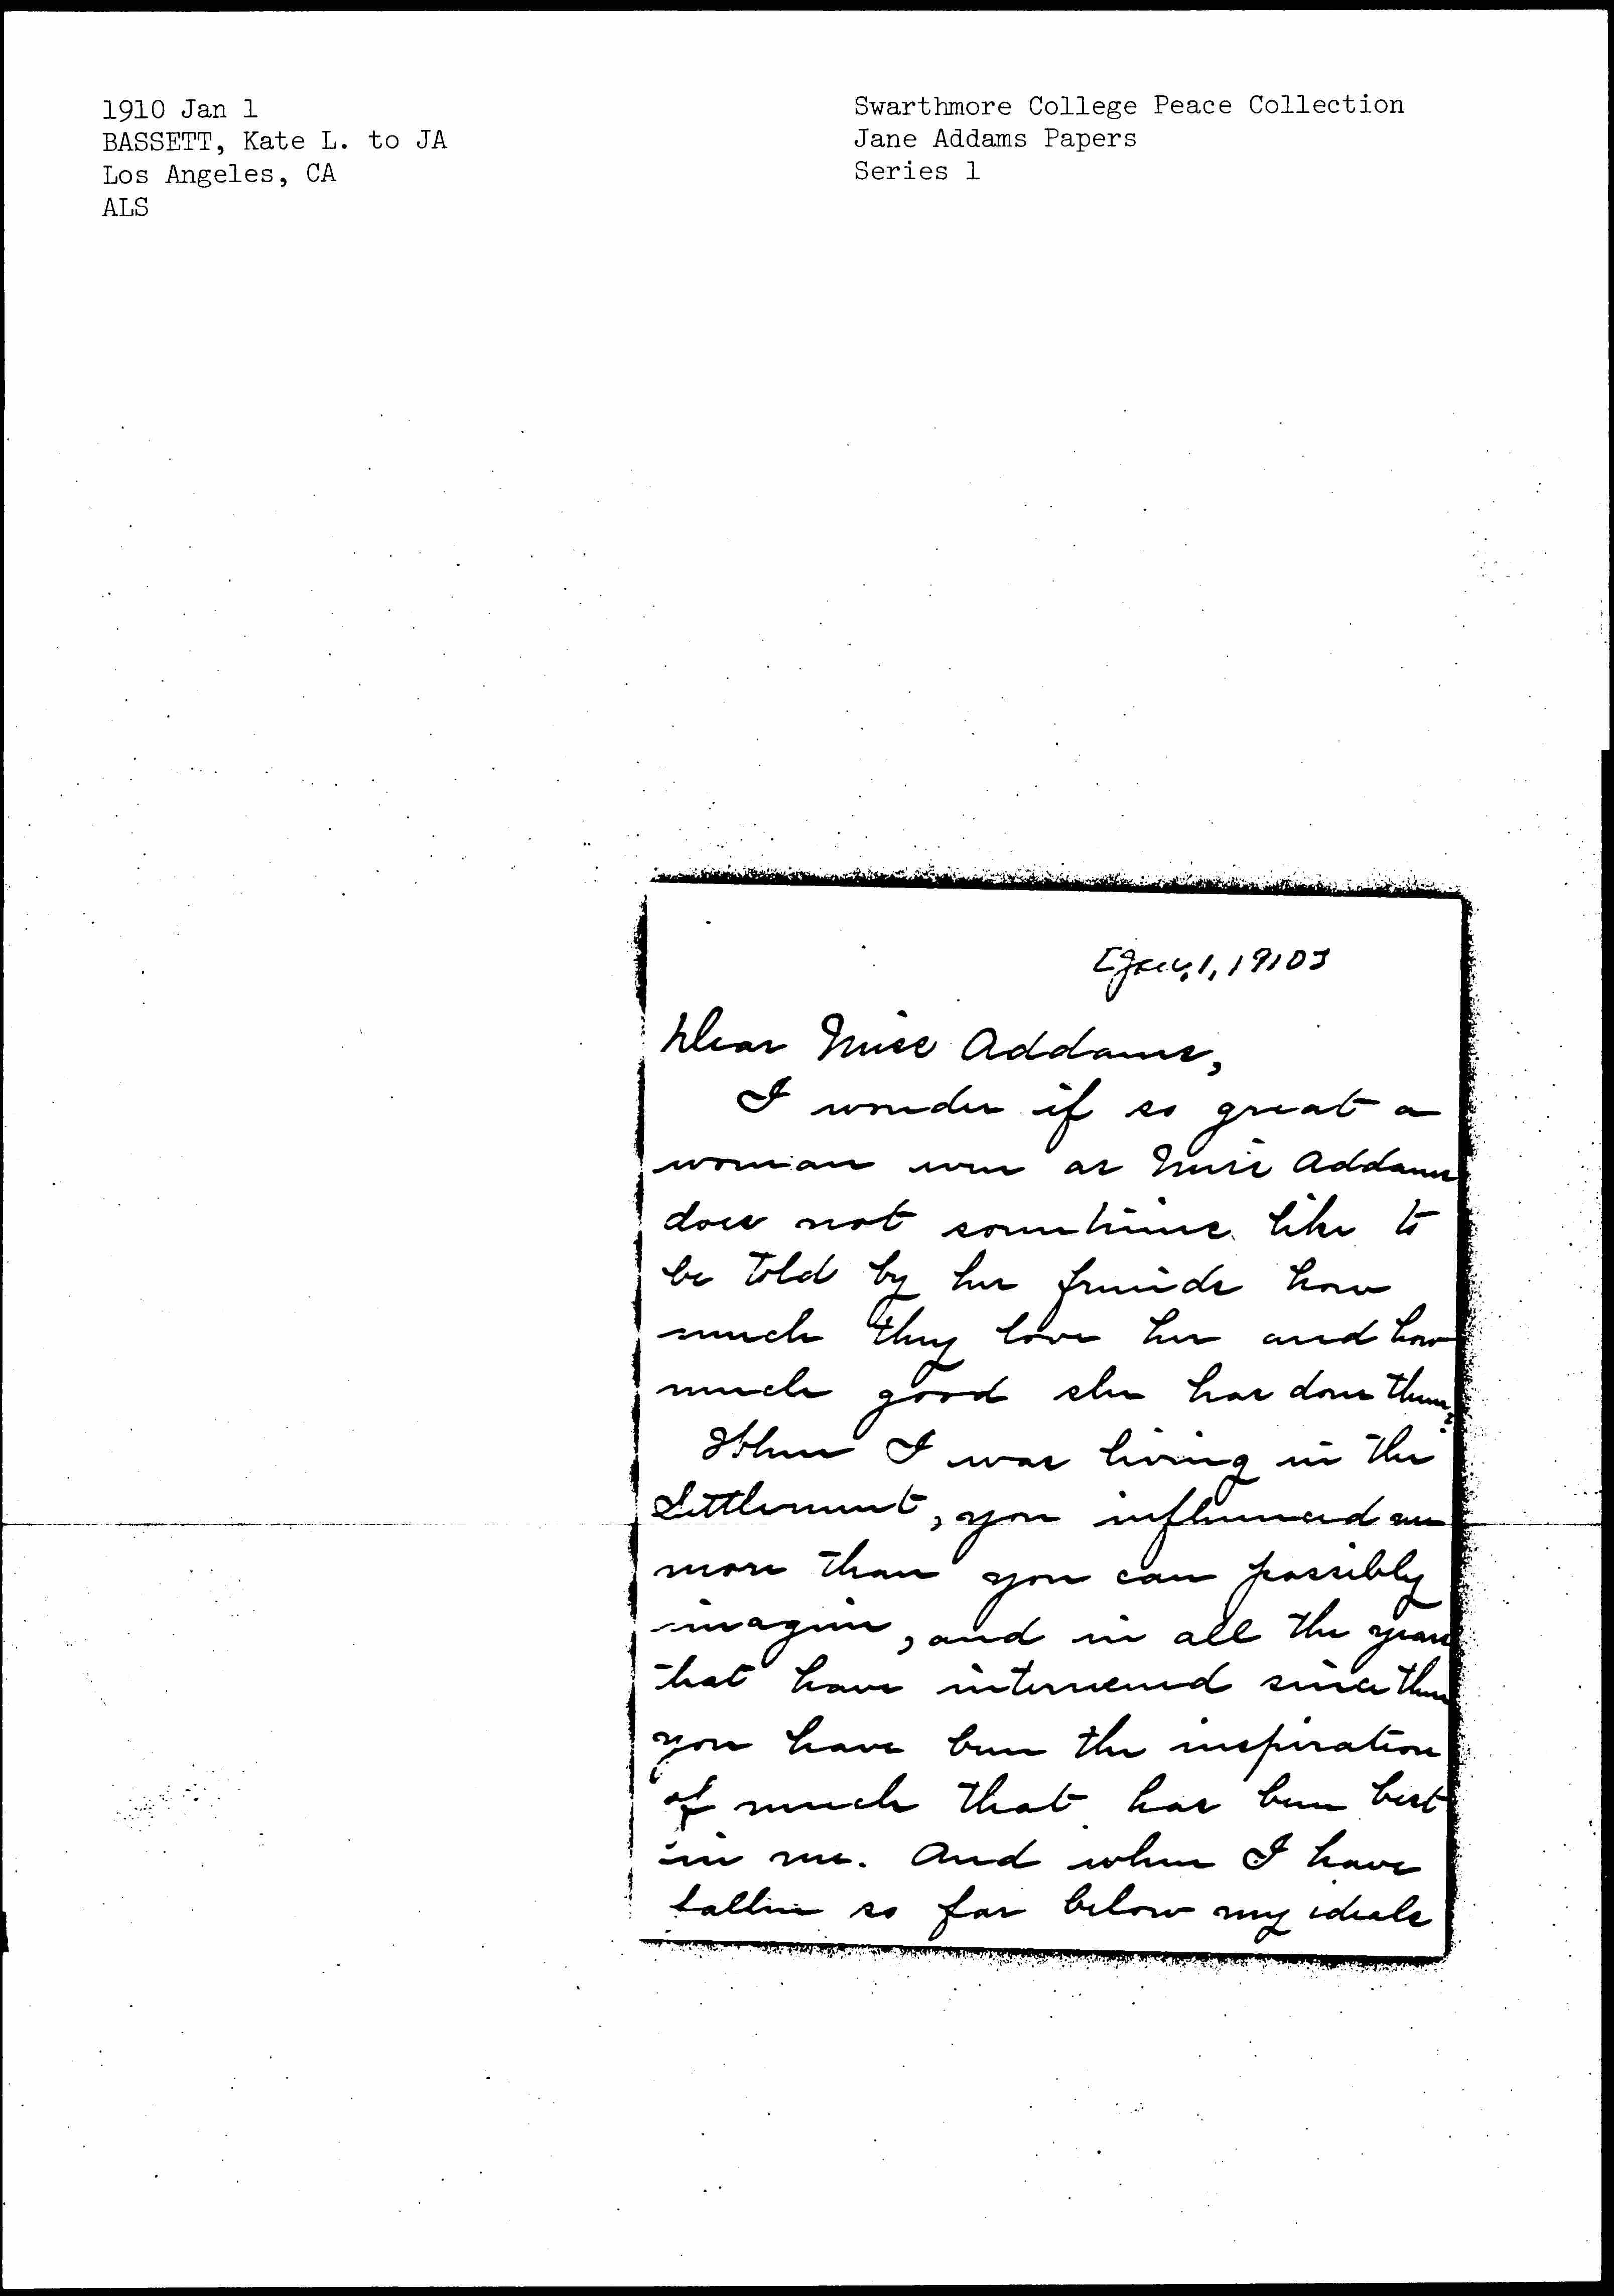 1910 Jan 1
BASSETT, Kate L. to JA
Los Angeles, CA
ALS
Swarthmore College Peace Collection
Jane Addams Papers
Series 1
[Jan. 1, 1910]
Dear Miss Addams,
I wonder if so great a
woman even as Miss Addams
does not sometimes like to
be told by her friends how
much they love her and how
much good she has done them?
When I was living in the
Settlement, you influenced me
more than you can possibly
imagine, and in all the years
that have intervened since then
you have been the inspiration
of much that has been best
in me. And when I have
fallen so far below my ideals